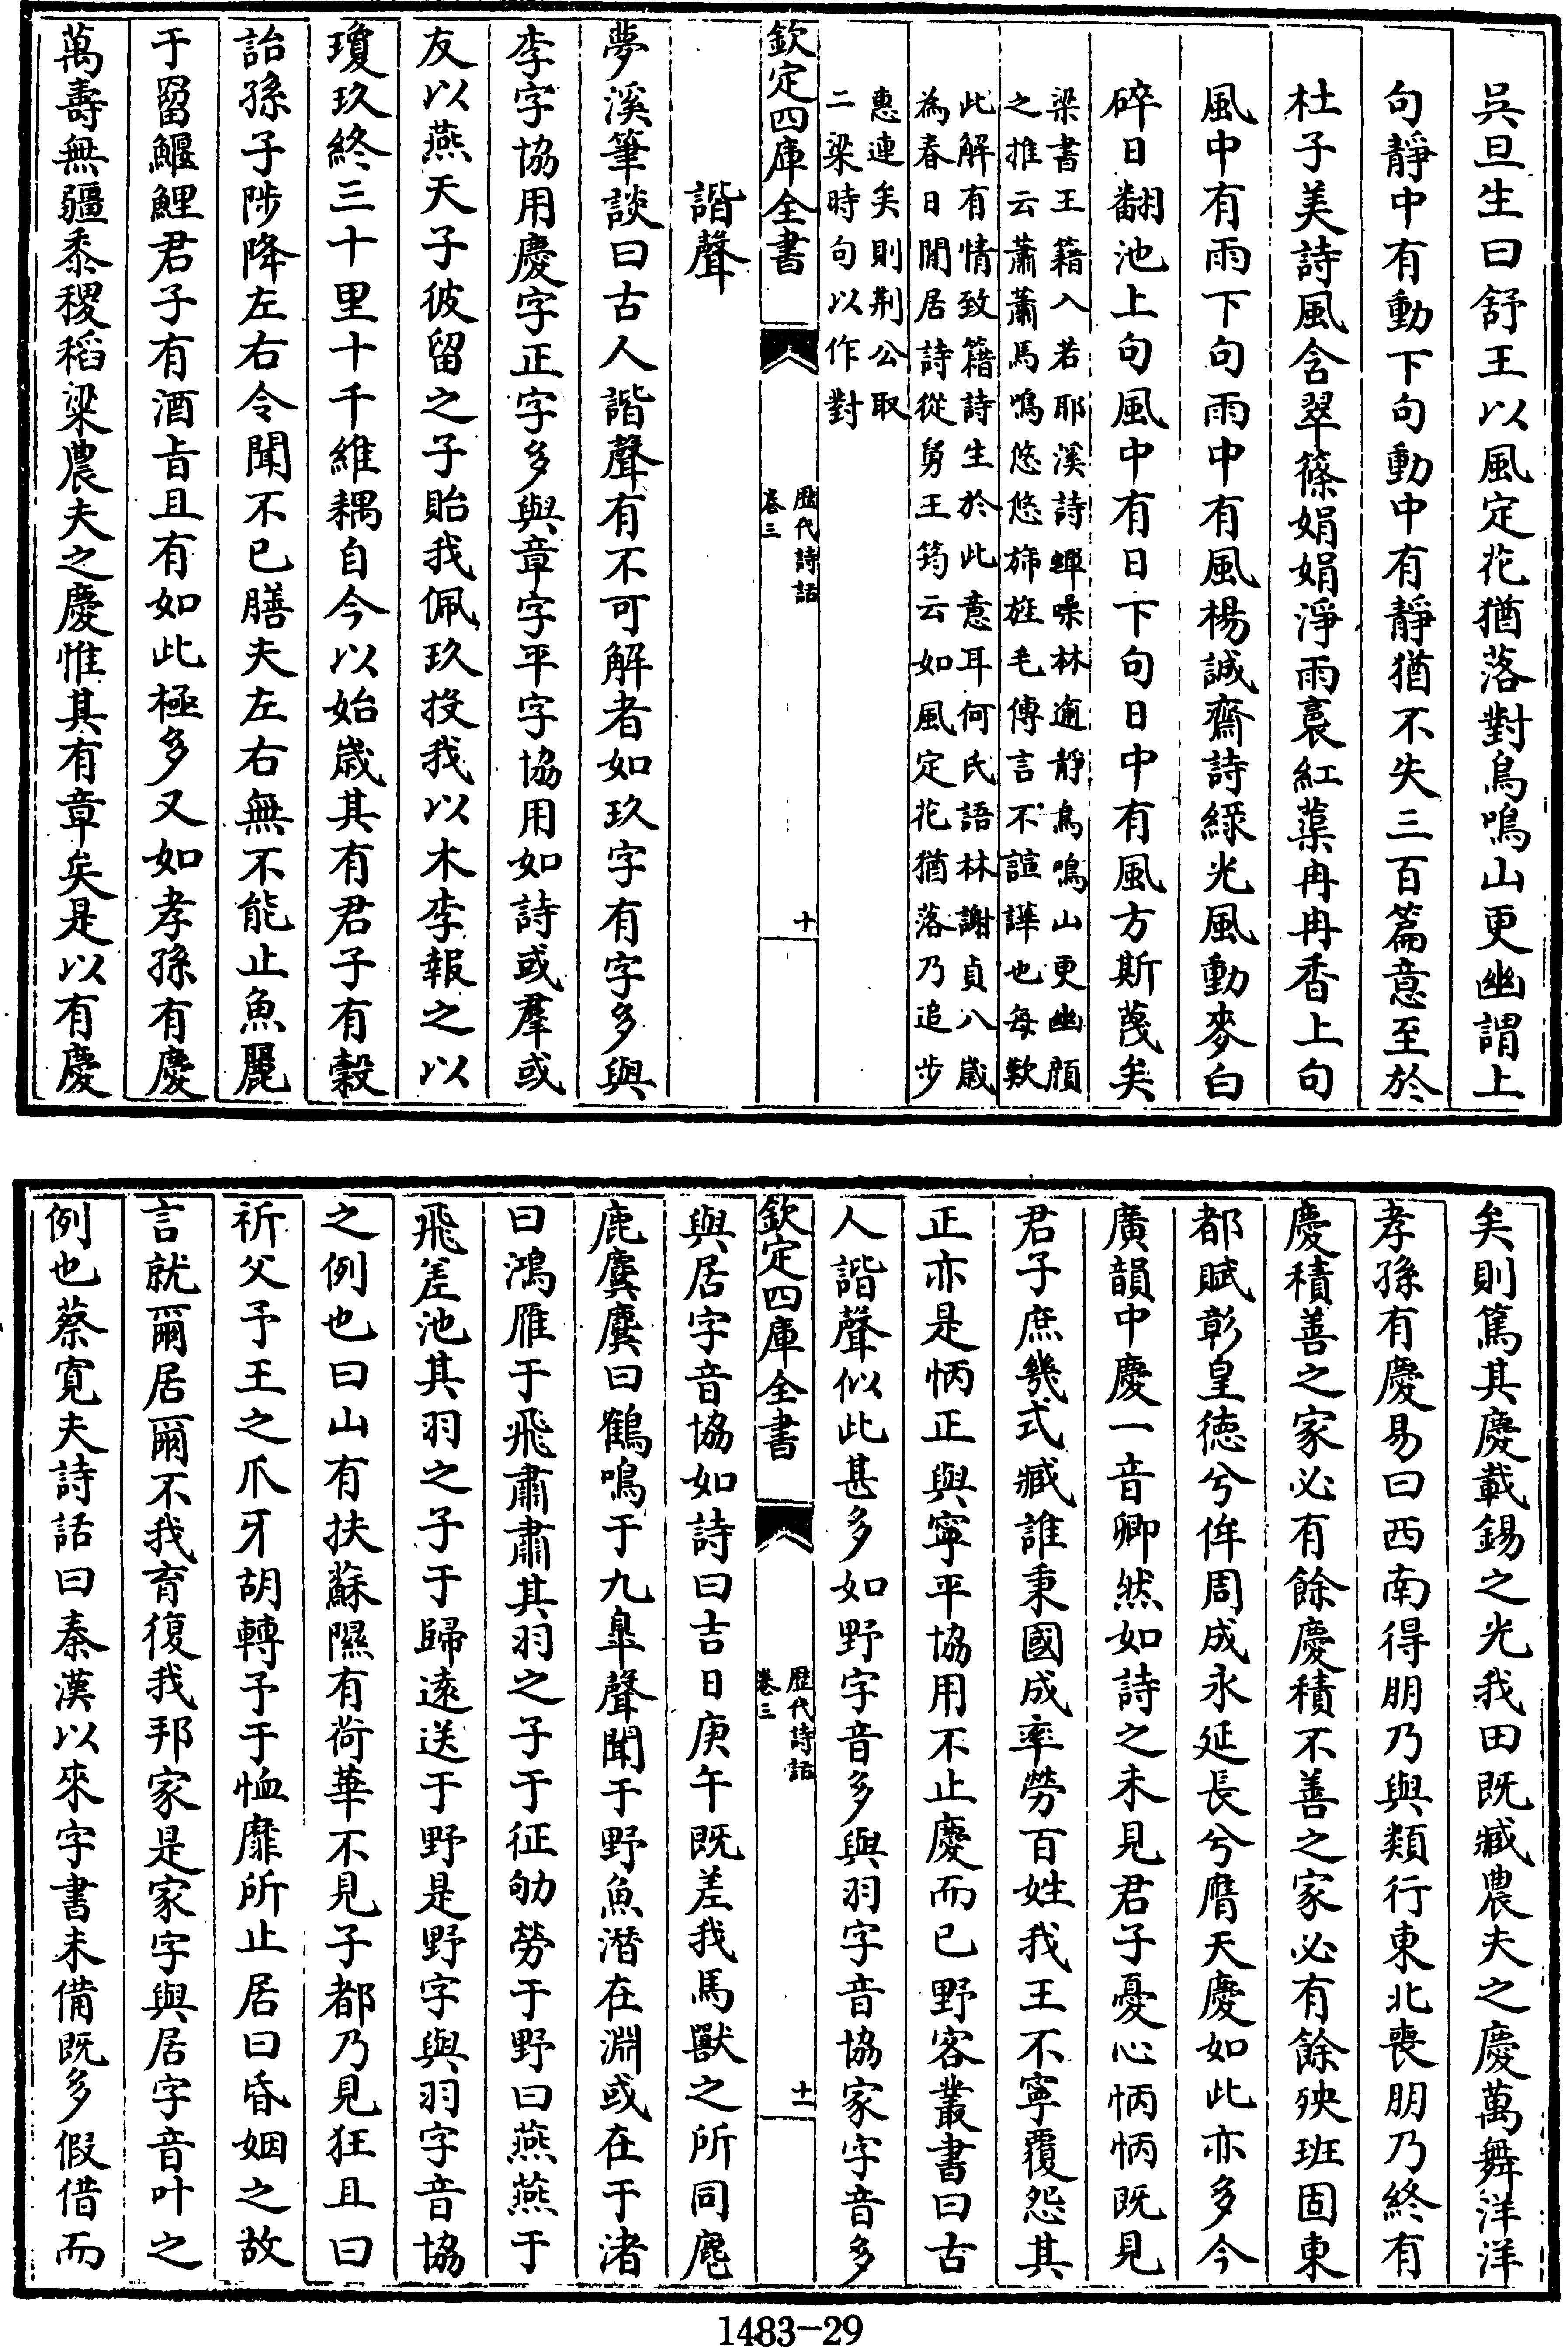 吳旦生曰舒王以風定花猶落對鳥鳴山更幽謂上
句靜中有動下句動中有靜猶不失三百篇意至於
杜子美詩風含翠篠娟娟淨雨裛紅蕖冉冉香上句
風中有雨下句雨中有風楊誠齋詩綠光風動麥白
碎日翻池上句風中有日下句日中有風方斯蔑矣
梁書王籍入若耶溪詩蟬噪林逾靜鳥鳴山更幽顔
之推云蕭蕭馬鳴悠悠斾旌毛傳言不諠譁也每歎
此解有情致籍詩生於此意耳何氏語林謝貞八歲
為春日閒居詩從舅王筠云如風定花猶落乃追步
惠連矣則荆公取
二梁時句以作對
欽定四庫全書
歷代詩話
卷三
十
諧聲
夢溪筆談曰古人諧聲有不可解者如玖字有字多與
李字協用慶字正字多與章字平字協用如詩或羣或
友以燕天子彼留之子貽我佩玖投我以木李報之以
瓊玖終三十里十千維耦自今以始歲其有君子有穀
詒孫子陟降左右令聞不已膳夫左右無不能止魚麗
于罶鰋鯉君子有酒旨且有如此極多又如孝孫有慶
萬壽無疆黍稷稻粱農夫之慶惟其有章矣是以有慶
矣則篤其慶載錫之光我田既臧農夫之慶萬舞洋洋
孝孫有慶易曰西南得朋乃與類行東北喪朋乃終有
慶積善之家必有餘慶積不善之家必有餘殃班固東
都賦彰皇德兮侔周成永延長兮膺天慶如此亦多今
廣韻中慶一音卿然如詩之未見君子憂心怲怲既見
君子庶幾式臧誰秉國成率勞百姓我王不寧覆怨其
正亦是怲正與寧平協用不止慶而已野客叢書曰古
人諧聲似此甚多如野字音多與羽字音協家字音多
欽定四庫全書
歷代詩話
卷三
十一
與居字音協如詩曰吉日庚午既差我馬獸之所同麀
鹿麌麌曰鶴鳴于九臯聲聞于野魚潛在淵或在于渚
曰鴻雁于飛肅肅其羽之子于征劬勞于野曰燕燕于
飛差池其羽之子于歸遠送于野是野字與羽字音協
之例也曰山有扶蘇隰有荷華不見子都乃見狂且曰
祈父予王之爪牙胡轉予于恤靡所止居曰昏姻之故
言就爾居爾不我育復我邦家是家字與居字音叶之
例也蔡寬夫詩話曰秦漢以來字書未備既多假借而
1483-29